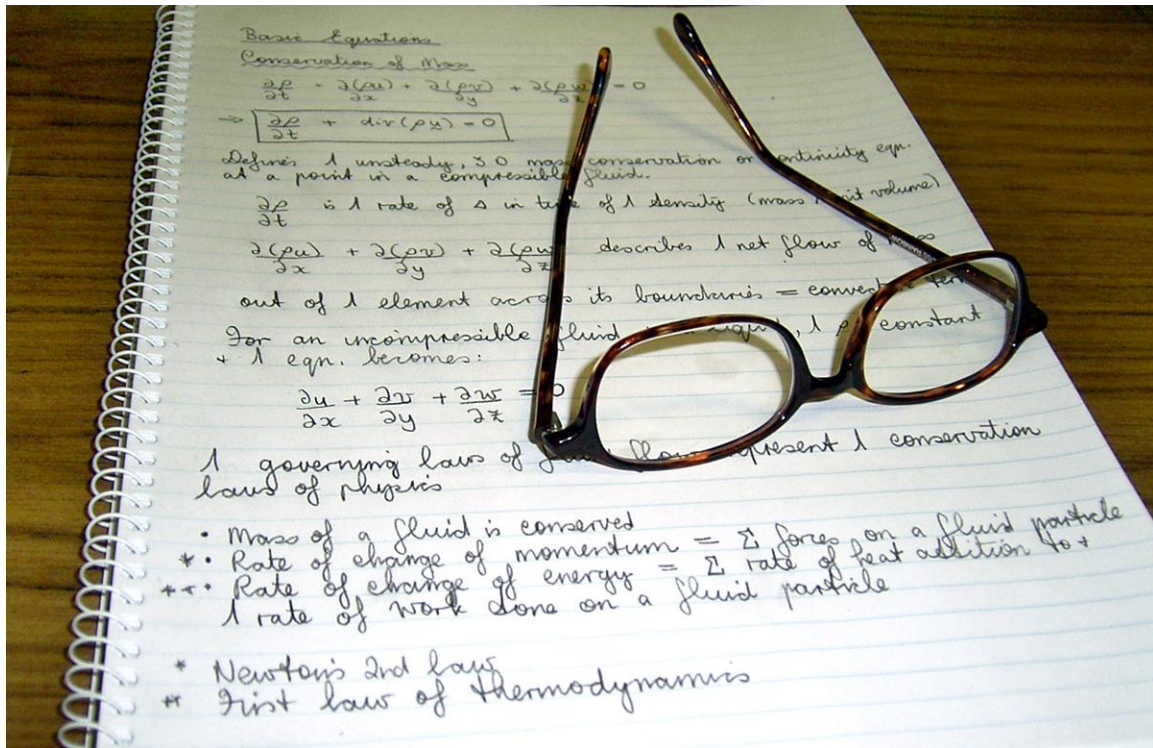 Basic Equations
Conservation of Mass
∂ρ/∂t + ∂(ρu)/∂x + ∂(ρv)/∂y + ∂(ρw)/∂z = 0
⇒ ∂ρ/∂t + div(ρu) = 0
Defines 1 unsteady, 3D mass conservation or continuity eqn.
at a point in a compressible fluid.
∂ρ/∂t is 1 rate of Δ in time of 1 density (mass unit volume)
∂(ρu)/∂x + ∂(ρv)/∂y + ∂(ρw)/∂z describes 1 net flow of mass
out of 1 element across its boundaries = convective term
For an incompressible fluid 1 ρ constant
+ 1 eqn. becomes:
∂u/∂x + ∂v/∂y + ∂w/∂z = 0
1 governing laws of flow represent 1 conservation
laws of physics
• Mass of a fluid is conserved
* • Rate of change of momentum = Σ forces on a fluid particle
** • Rate of change of energy = Σ rate of heat addition to +
1 rate of work done on a fluid particle
* Newton's 2nd law
** First law of thermodynamics